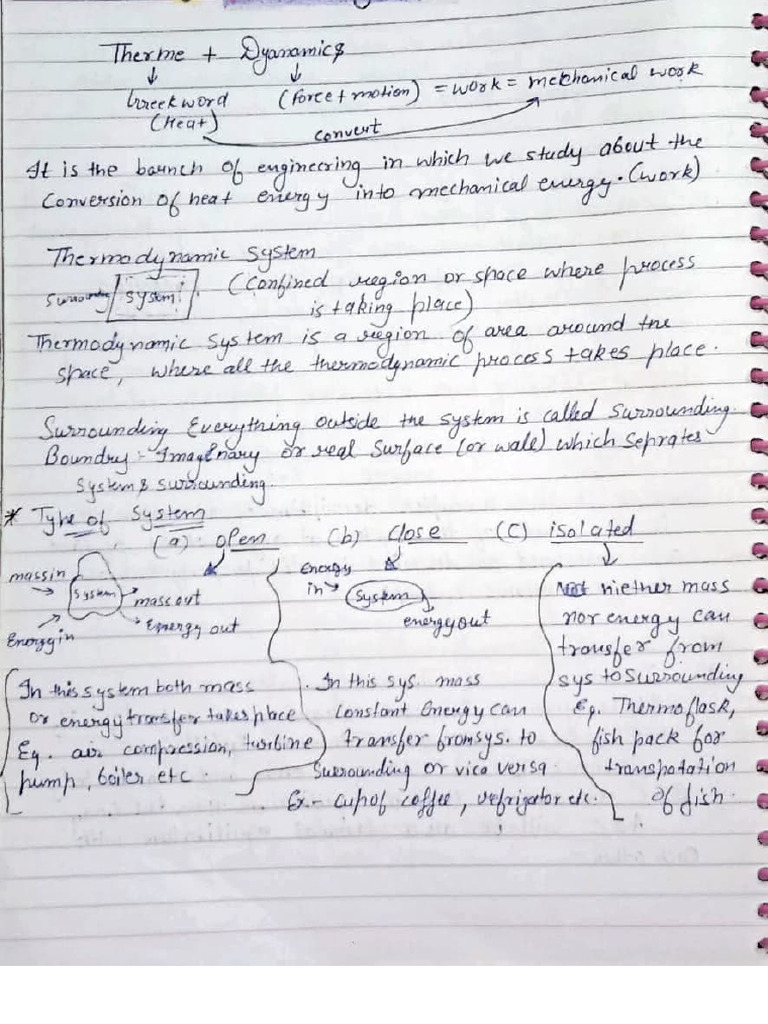 Therme + Dyanamics
Greek word (force + motion) = work = mechanical work
(Heat) convert
It is the baunch of engineering in which we study about the
Conversion of heat energy into mechanical energy. (work)
Thermodynamic System
Surrounding System (Confined region or space where process
is taking place)
Thermodynamic System is a region of area around the
space, where all the thermodynamic process takes place.
Surrounding Everything outside the system is called Surrounding.
Boundry :- Imaginary or real Surface (or wale) which Seprates
System & Surrounding.
* Type of System
(a) open (b) Close (C) isolated
mass in System mass out Energy in Energy out
Energy in System energy out
In this system both mass
or energy transfer takes place
Eg. air compression, turbine
pump, boiler etc.
In this sys. mass
Constant Energy can
transfer from sys. to
Surrounding or vice versa
Ex.- Cup of coffee, refrigator etc.
Not niether mass
nor energy can
transfer from
sys to Surrounding
Eg. Thermoflask,
fish pack for
transpotation
of fish.